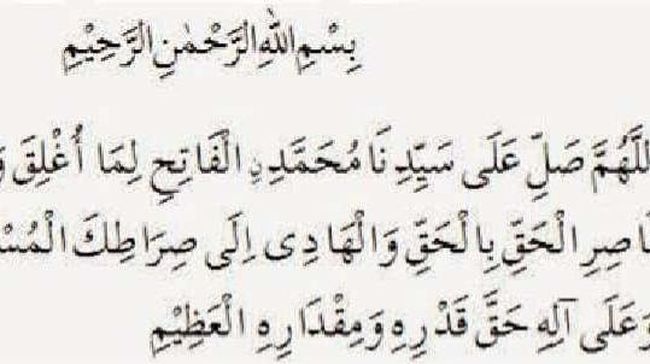 بِسْمِ اللهِ الرَّحْمٰنِ الرَّحِيْمِ
للَّهُمَّ صَلِّ عَلَى سَيِّدِنَا مُحَمَّدِنِ الْفَاتِحِ لِمَا أُغْلِقَ
اصِرِ الْحَقِّ بِالْحَقِّ وَالْهَادِى اِلَى صِرَاطِكَ
وَعَلَى آلِهِ حَقَّ قَدْرِهِ وَمِقْدَارِهِ الْعَظِيْمِ